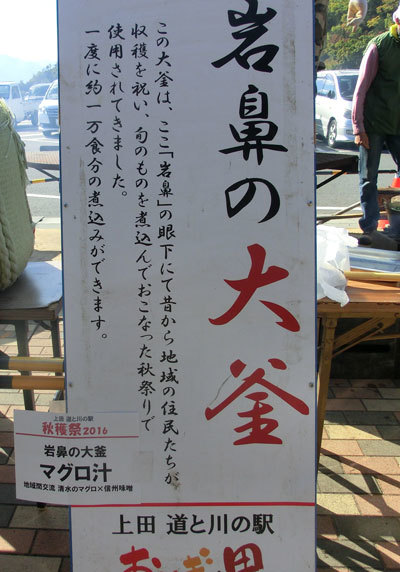 岩鼻の大釜
この大釜は、ここ「岩鼻」の眼下にて昔から地域の住民たちが
収穫を祝い、旬のものを煮込んでおこなった秋祭りで
使用されてきました。
一度に約一万食分の煮込みができます。
上田 道と川の駅
秋穫祭2016
岩鼻の大釜
マグロ汁
地域間交流 清水のマグロ×信州味噌
上田 道と川の駅
おとぎの里